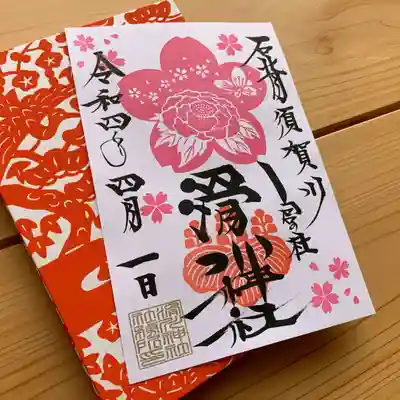 石背須賀川
滑川神社
令和四年 四月 一日